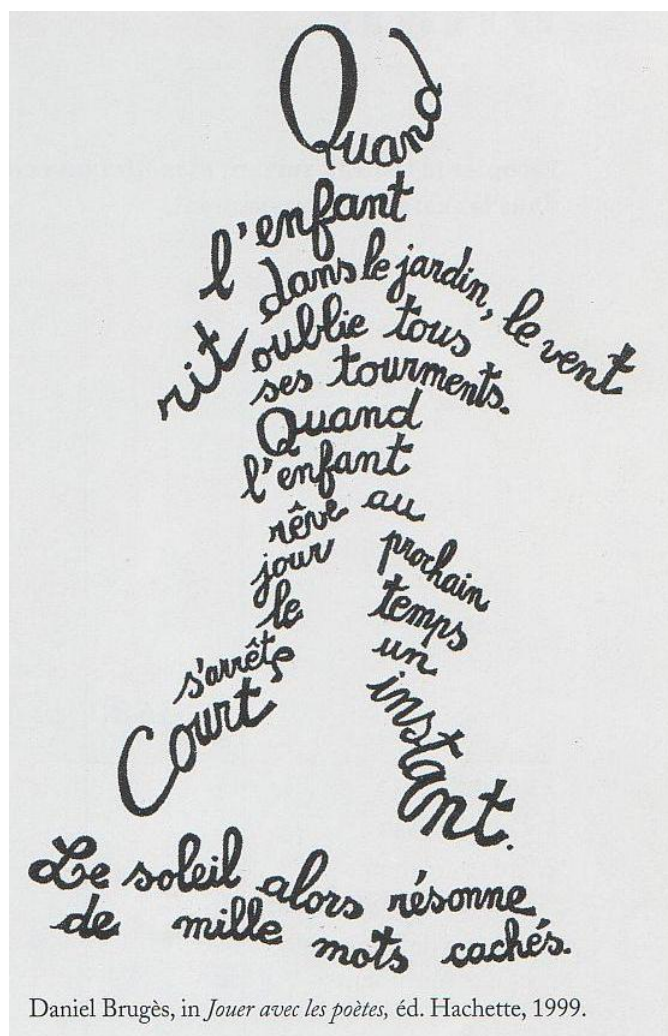 Quand
l'enfant
rit
dans le jardin, le vent
oublie tous
ses tourments.
Quand
l'enfant
rêve au
prochain
jour
le temps
s'arrête
Court,
un
instant.
Le soleil alors résonne
de mille mots cachés.
Daniel Brugès, in Jouer avec les poètes, éd. Hachette, 1999.